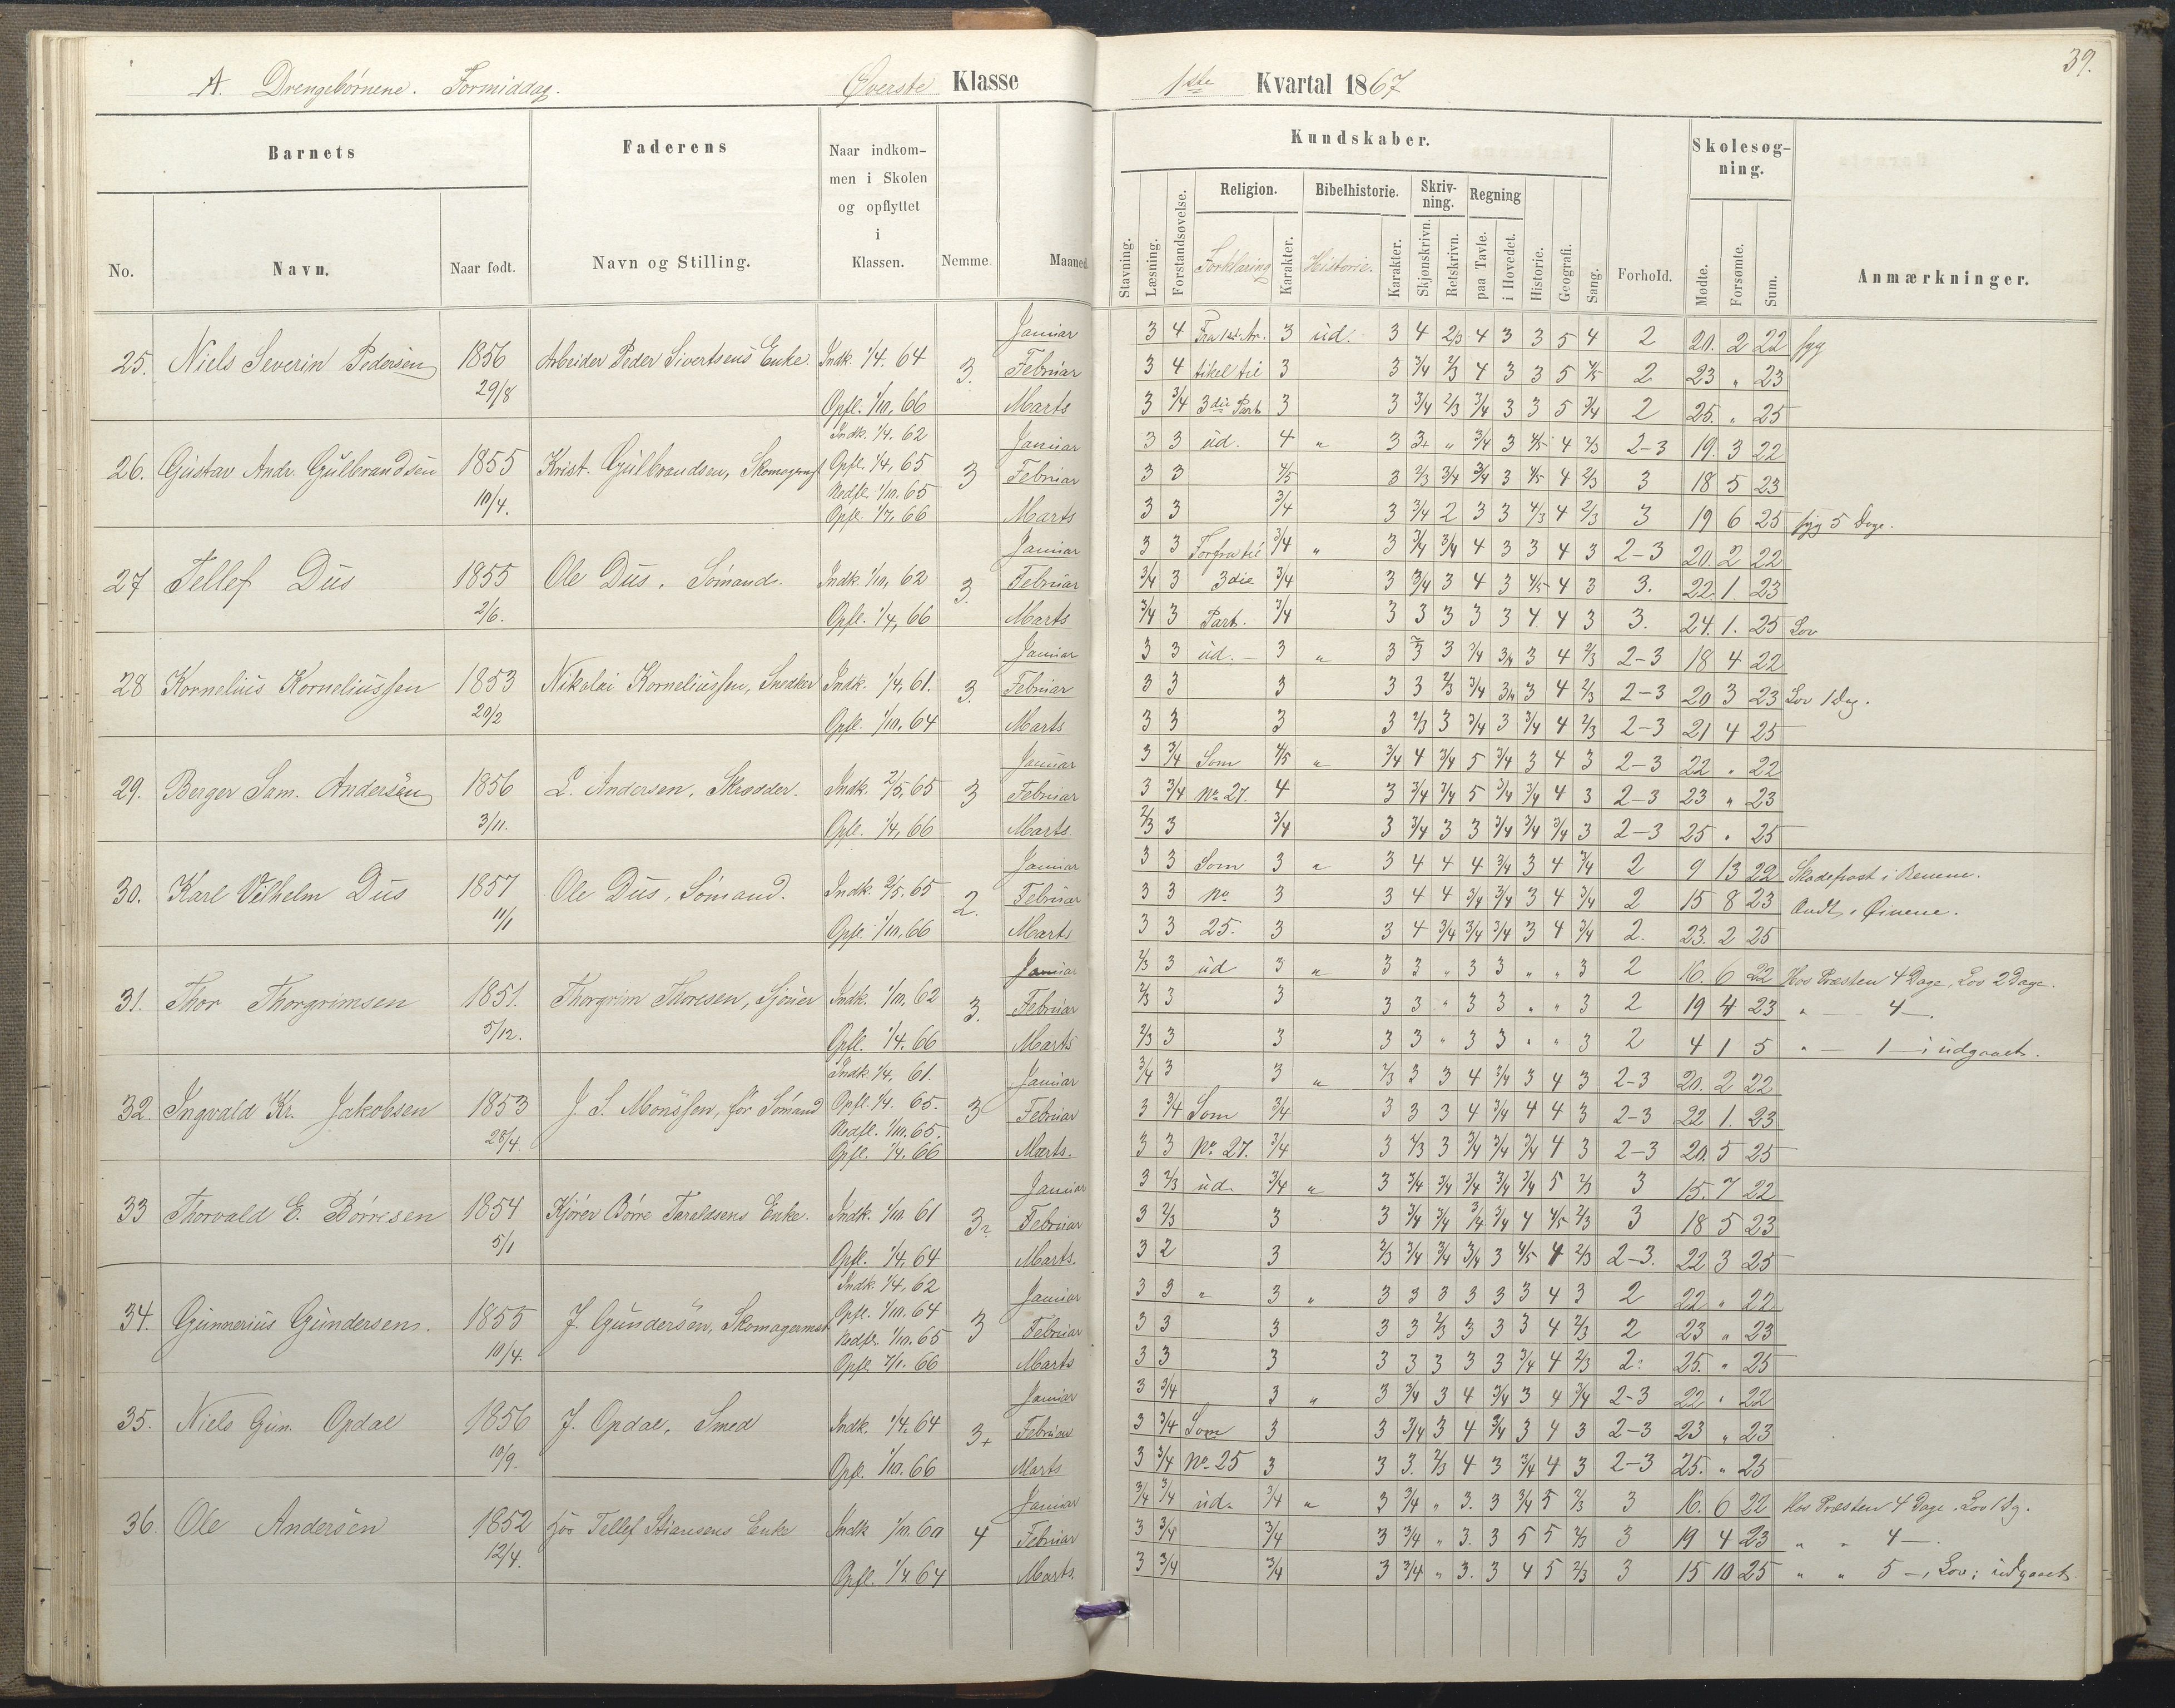 A. Drengebørnene. Formiddag. Øverste Klasse
1ste Kvartal 1867
39.
Barnets
Faderens
Naar indkom-
men i Skolen
og opflyttet
i
Klassen.
No. Navn. Naar født. Navn og Stilling. Nemme Maaned
Kundskaber.
Skolesøg-
ning.
Religion. Bibelhistorie. Skriv-
ning. Regning
Stavning. Læsning. Forstandsøvelse. Forklaring Karakter. Historie. Karakter. Skjønskrivn. Retskrivn. paa Tavle. i Hovedet. Historie. Geografi. Sang. Forhold. Mødte. Forsømte. Sum. Anmærkninger.
25. Niels Severin Pedersen 1856 29/8 Arbeider Peder Sivertsens Enke. Indk. 1/4. 64 Opfl. 1/10. 66 3.
Januar 3 4 Fra 1ste Ar- 3 ud. 3 4 2/3 4 3 3 5 4 2 20. 2 22 syg
Februar 3 4 tikel til 3 3 3/4 2/3 4 3 3 5 4/5 2 23 " 23
Marts 3 3/4 3die Part 3 3 3/4 2/3 3/4 3 3 5 3/4 2 25. " 25
26. Gustav Andr. Gulbrandsen 1855 10/4. Krist. Gulbrandsen, Indk. 1/4. 62 Opfl. 1/4, 65 Nedfl. 1/10. 65 Opfl. 1/7. 66 3
Januar 3 3 ud. 4 " 3 3+ " 3/4 3 4/5 4 2/3 2-3 19. 3 22
Februar 3 3 4/5 3 2/3 3/4 3/4 3 4/5 4 2/3 3 18 5 23
Marts 3 3 3/4 3 3/4 2 3 3 4/3 4 2/3 3 19 6 25 syg 5 Dage.
27 Tellef Dus 1855 2/6. Ole Dus, Sømand. Indk. 1/10, 62 Opfl. 1/4, 66 3.
Januar 3 3 Forfra til 3/4 " 3 3/4 3/4 4 3 3 4 3 2-3 20. 2 22
Februar 3/4 3 3die 3/4 3 3/4 3 4 3 4/5 4 3 3. 22. 1. 23
Marts 3/4 3 Part. 3/4 3 3 3 3 3 4. 4 3 3. 24. 1. 25 Lov
28 Kornelius Korneliussen 1853 20/2 Nikolai Korneliussen, Snedker Indk. 1/4, 61. Opfl. 1/10, 64 3.
Januar 3 3 ud. 3 " 3 3 3 3/4 3/4 3 4 2/3 2-3 18 4 22
Februar 3 3 3 3 3 2/3 3/4 3/4 3 4 2/3 2-3 20 3 23 Lov 1 Dag.
Marts 3 3 3 3 2/3 3 3/4 3 3/4 4 2/3 2-3 21 4 25
29. Berger Sam. Andersen 1856 3/11. L. Andersen, Skrædder. Indk. 2/5, 65 Opfl. 1/4, 66 3
Januar 3 3/4 Som 4/5 " 3/4 4 3/4 5 3/4 3 4 3 2-3 22 " 22
Februar 3 3/4 No. 27. 4 3 3/4 3/4 5 3/4 3/4 4 3 2-3 23 " 23
Marts. 2/3 3 3/4 3 3/4 3 3 3/4 3/4 3/4 3 2-3 25 " 25
30. Karl Vilhelm Dus 1857 11/1 Ole Dus, Sømand. Indk. 2/5. 65 Opfl. 1/10, 66 2.
Januar 3 3 Som 3 " 3 4 4 4 3/4 3 4 3/4 2 9 13 22 i Benene.
Februar 3 3 No. 3 3 4 4 3/4 3/4 3 4 3/4 2 15 8 23 Ondt i Øinene.
Marts 3 3 25. 3 3 4 3/4 3/4 3/4 3 4 3/4 2. 23. 2 25
31. Thor Thorgrimsen 1851. 5/12. Thorgrim Thoresen, Indk. 1/10. 62 Opfl. 1/4. 66 3.
Januar 2/3 3 ud 3 " 3 3 " 3 3 " " 3 2 16. 6 22 Hos Præsten 4 Dage, Lov 2 Dage.
Februar 2/3 3 3 3 3 " 3 3 " " 3 2 19 4 23 " — 4 —.
Marts 2/3 3 3 3 3 " 3 3 " " 3 2 4 1 5 " — 1 — ; udgaaet.
32. Ingvald Kr. Jakobsen 1853 28/4. J. S. Monssen, før Sømand Indk. 1/4, 61. Opfl. 1/4. 65. Nedfl. 1/10. 65. Opfl. 1/4. 66 3
Januar 3/4 3 3 " 2/3 3 3 4 3/4 3 4 3 2-3 20. 2 22
Februar 3 3/4 Som 3/4 3 3 3 4 3/4 4 4 3 2-3 22 1. 23
Marts. 3 3 No. 27. 3/4 3 2/3 3 3/4 3/4 3/4 4 3 2-3 20. 5 25
33 Thorvald E. Børresen 1854 5/1 Kjører Børre Taraldsens Enke. Indk. 1/10 61 Opfl. 1/4, 64 3
Januar 3 2/3 ud. 3/4 " 3 3/4 3/4 3/4 3/4 3/4 5 2/3 3 15. 7 22
Februar 3 2/3 3 3 3/4 3/4 3/4 3/4 4 4/5 2/3 3 18 5 23
Marts. 3 2 3 2/3 3/4 3/4 3/4 3 4/5 4 2/3 2-3. 22 3 25
34. Gunnerius Gundersen. 1855 10/4. J. Gundersen, Skomagermest Indk. 1/4, 62 Opfl. 1/10. 64 Nedfl. 1/10. 65 Opfl. 7/1. 66 3
Januar 3 3 " 3 " 3 3 3 3 3 3 4 3 2 22 " 22
Februar 3 3 3 3 3 2/3 3 3 3 4 2/3 2 23 " 23
Marts 3 3 3 3 3 3 3 3 3/4 4 2/3 2. 25. " 25
35. Niels Gun. Opdal 1856 10/9. J. Opdal, Smed Indk. 1/4. 64 Opfl. 1/10. 66 3+
Januar 3 3/4 3 " 3 3/4 3 4 3/4 3 4 3/4 2-3 22 " 22
Februar 3 3/4 Som 3 3 3/4 3 4 3/4 3 4 3 2-3 23 " 23
Marts 3 3/4 No. 25 3 3 3. 2/3 4 3 3/4 4 3 2-3 25. " 25
36. Ole Andersen 1852 12/4. hos Tellef Stiansens Enke Indk 1/10. 60 Opfl. 1/4 64 4
Januar 3/4 3/4 ud. 3/4 " 3 3/4 " 3. 3 3/4 5 2/3 3 16. 6 22 Hos Præsten 4 Dage. Lov 1 Dg.
Februar 3 3/4 3/4 3 3/4 " 3. 3 5 5 2/3 3 19 4 23 " " 4 —.
Marts. 3 3/4 3/4 3 3/4 " 3. 3 4 5 2/3 3 15 10 25 " " 5 —, Lov; udgaaet.